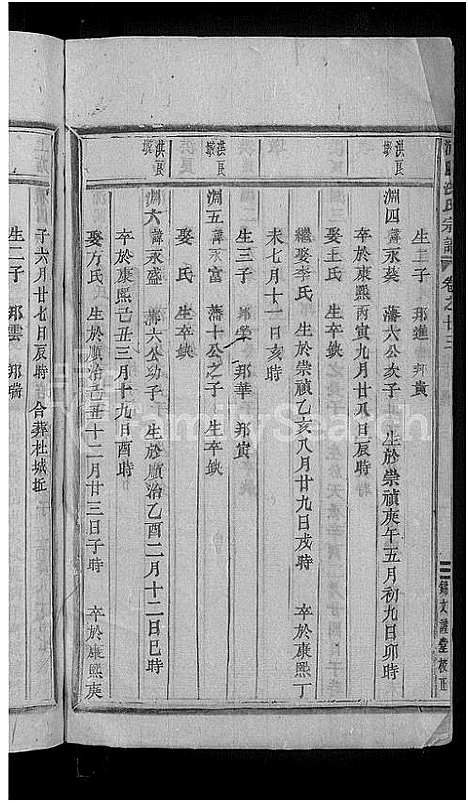 氏宗譜 卷之廿三
生二子 邦進 邦貴
洪良
淵四 諱永葵 藩六公次子 生於崇禎庚午五月初九日卯時
卒於康熙丙寅九月廿八日辰時
娶王氏 生卒缺
繼娶李氏 生於崇禎乙亥八月廿九日戌時 卒於康熙丁
未七月十一日亥時
生三子 邦榮 邦華 邦寅
洪良
淵五 諱永富 藩十公之子 生卒缺
娶 氏 生卒缺
洪良
淵六 諱永盛 藩六公幼子 生於順治乙酉二月十二日巳時
卒於康熙己丑三月十九日酉時
娶方氏 生於順治己丑十二月廿三日子時 卒於康熙庚
子六月廿七日辰時 合葬杜城坵
生二子 邦雲 邦瑞
FamilySearch